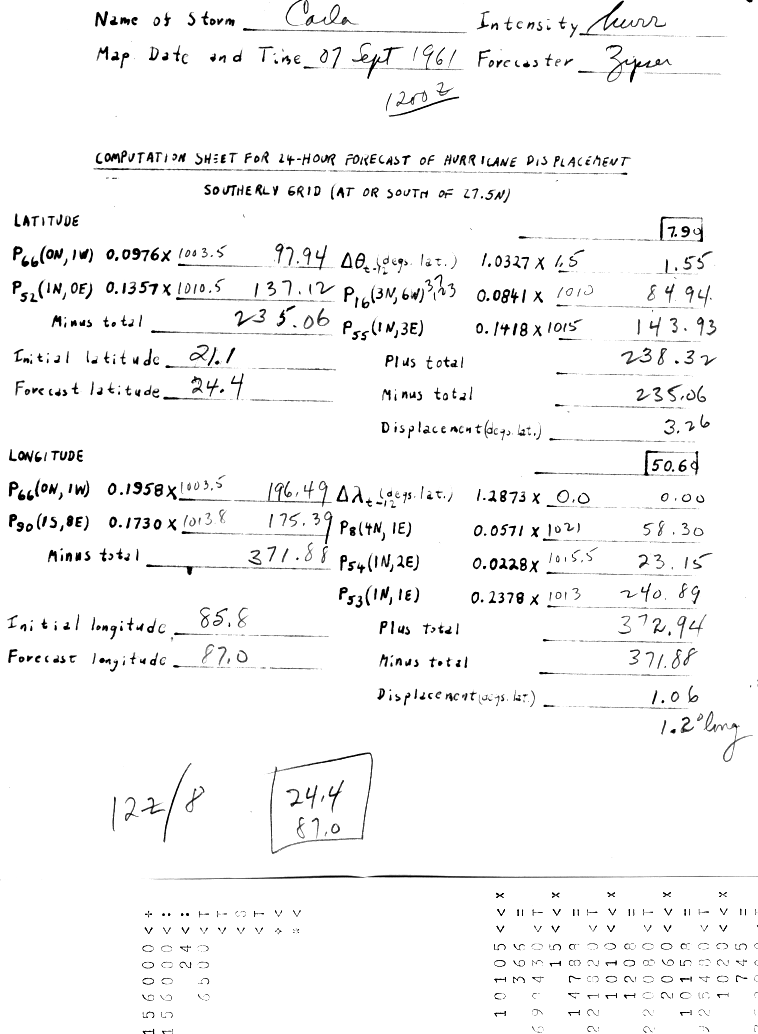 Name of Storm Carla Intensity hurr
Map Date and Time 07 Sept 1961 Forecaster Zipser
1200Z
COMPUTATION SHEET FOR 24-HOUR FORECAST OF HURRICANE DISPLACEMENT
SOUTHERLY GRID (AT OR SOUTH OF 27.5N)
LATITUDE 7.90
P66(0N, 1W) 0.0976 x 1003.5 97.94 Δθt-12 (degs. lat.) 1.0327 x 1.5 1.55
P52(1N, 0E) 0.1357 x 1010.5 137.12 P16(3N, 6W) 0.0841 x 1010 84.94
Minus total 235.06 P55(1N, 3E) 0.1418 x 1015 143.93
Initial latitude 21.1 Plus total 238.32
Forecast latitude 24.4 Minus total 235.06
Displacement (degs. lat.) 3.26
LONGITUDE 50.60
P66(0N, 1W) 0.1958 x 1003.5 196.49 Δλt-12 (degs. lat.) 1.2873 x 0.0 0.00
P90(1S, 8E) 0.1730 x 1013.8 175.39 P8(4N, 1E) 0.0571 x 1021 58.30
Minus total 371.88 P54(1N, 2E) 0.0228 x 1015.5 23.15
P53(1N, 1E) 0.2378 x 1013 240.89
Initial longitude 85.8 Plus total 372.94
Forecast longitude 87.0 Minus total 371.88
Displacement (degs. lat.) 1.06
1.2° long
12Z/8
24.4
87.0